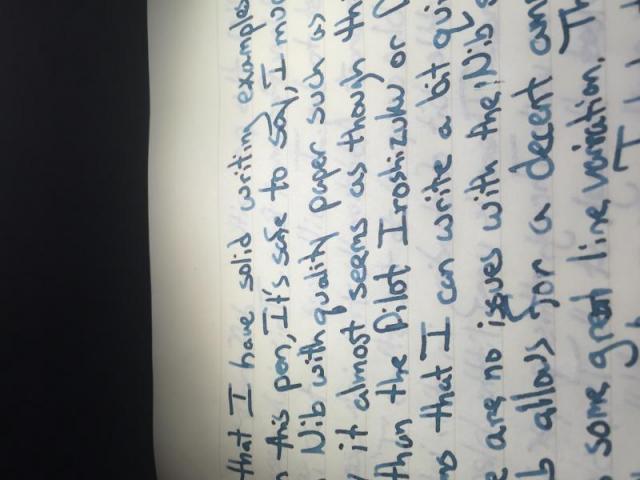 that I have solid writing examples
this pen, It's safe to say, I muc
Nib with quality paper such as
it almost seems as though thi
than the Pilot Iroshizuku or
that I can write a bit qui
e are no issues with the Nib s
b allows for a decent am
some great line variation. Th